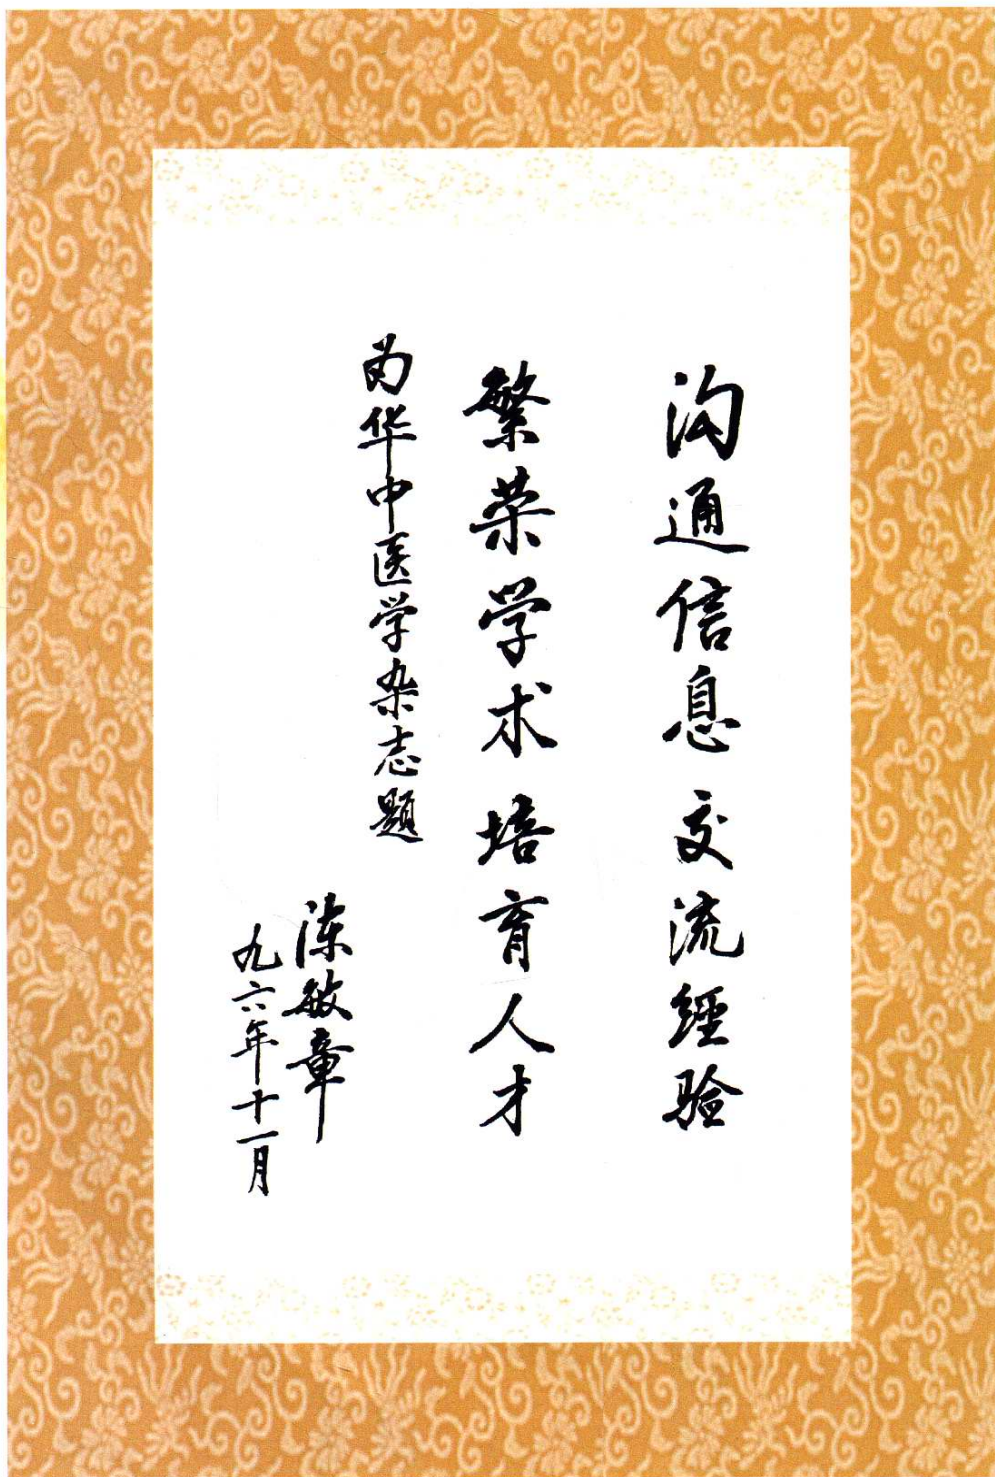 沟通信息交流經验
繁荣学术培育人才
为华中医学杂志题
陈敏章
九六年十一月